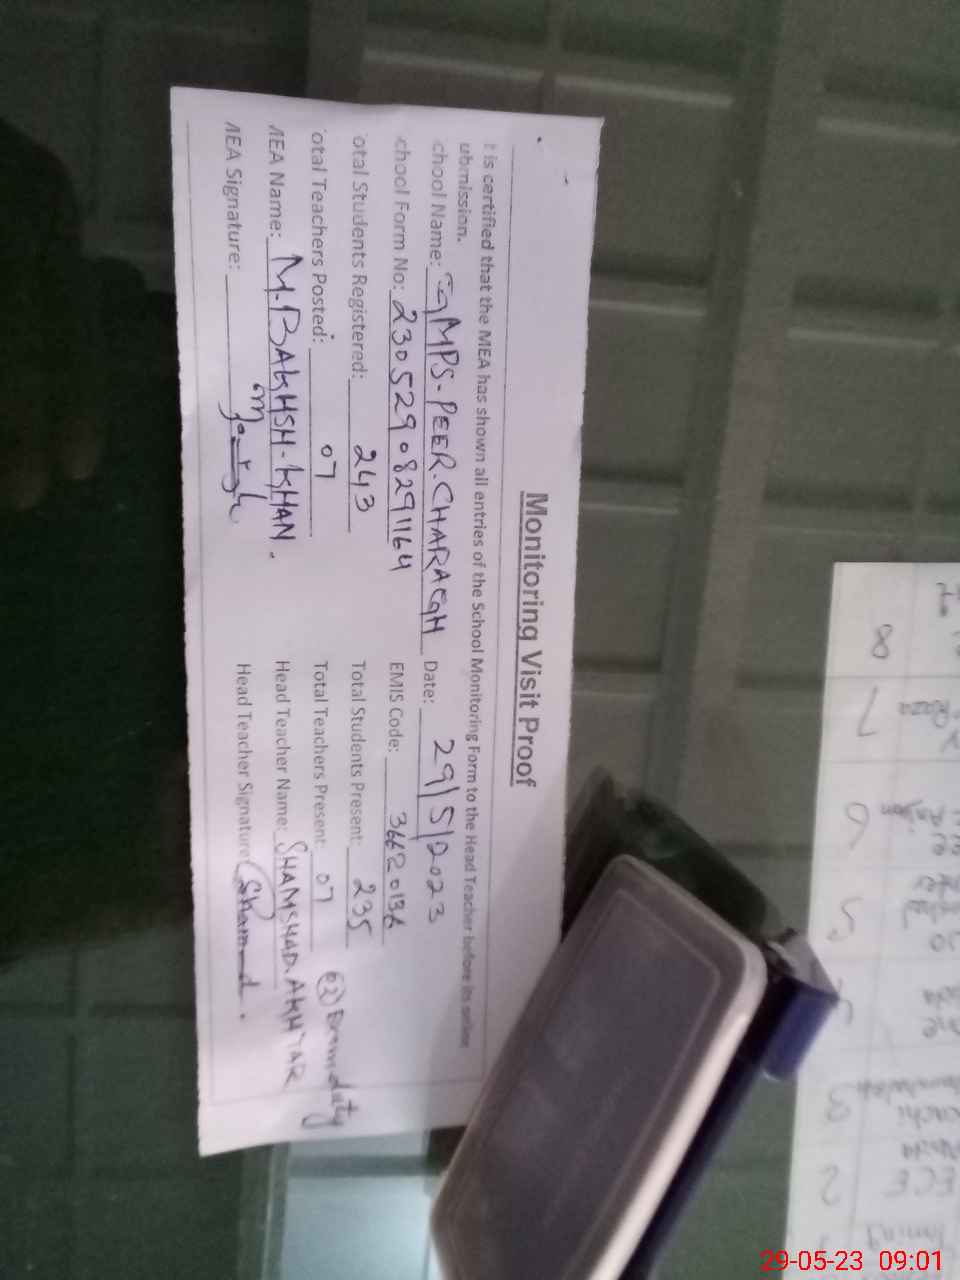 Monitoring Visit Proof
t is certified that the MEA has shown all entries of the School Monitoring Form to the Head Teacher before its online
ubmission.
chool Name: GMPS-PEER.CHARAGH Date: 29/5/2023
chool Form No: 230529082911 64 EMIS Code: 36620136
otal Students Registered: 243 Total Students Present: 235
otal Teachers Posted: 07 Total Teachers Present: 07 (02) Exam duty
MEA Name: M.BAKHSH-KHAN. Head Teacher Name: SHAMSHAD.AKHTAR
MEA Signature: Head Teacher Signature
8
7 Raza
6
5
3
2 ECE
29-05-23 09:01